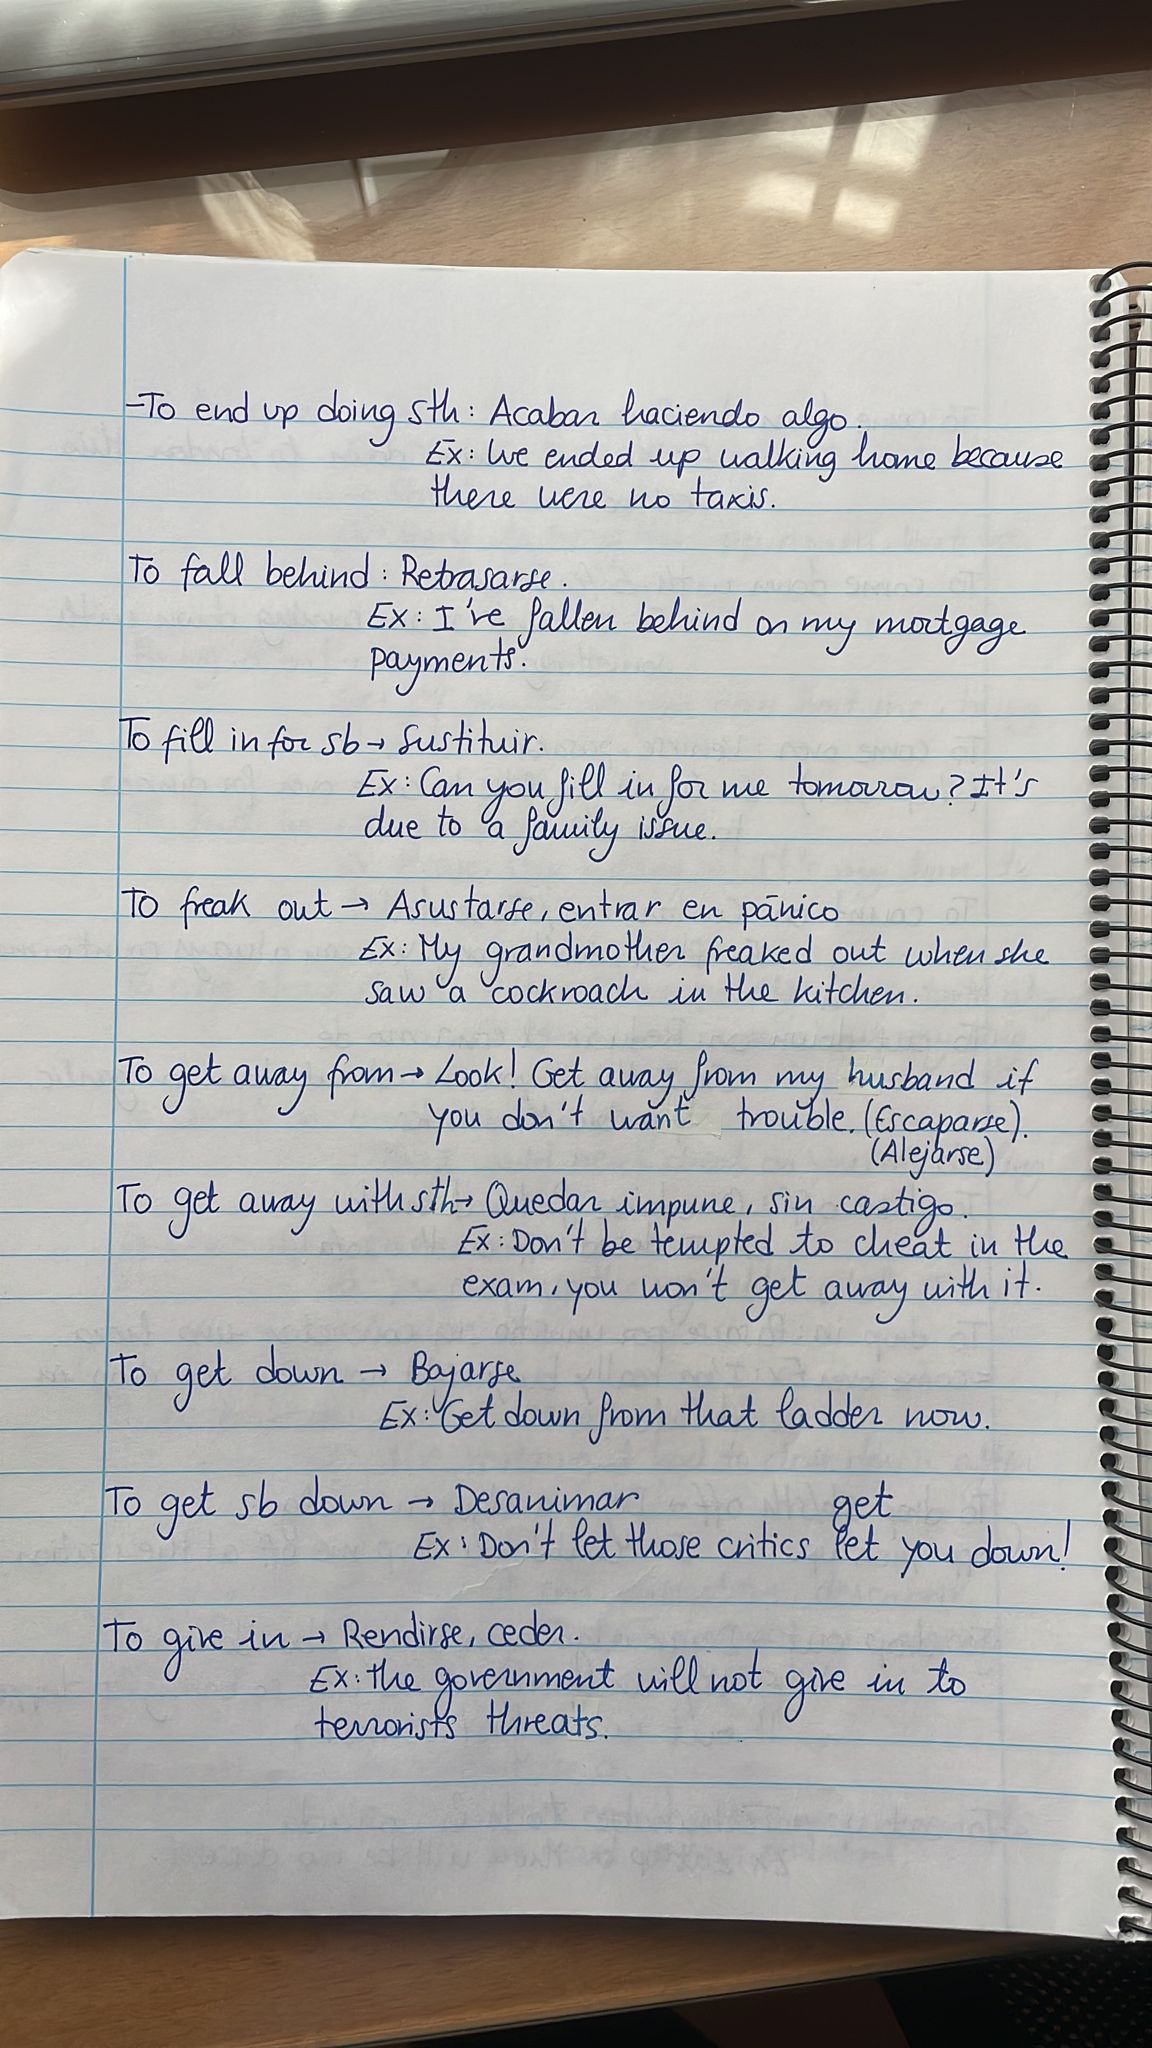 -To end up doing sth: Acabar haciendo algo.
Ex: We ended up walking home because
there were no taxis.
To fall behind: Retrasarse.
Ex: I've fallen behind on my mortgage
payments.
To fill in for sb → Sustituir.
Ex: Can you fill in for me tomorrow? It's
due to a family issue.
To freak out → Asustarse, entrar en pánico
Ex: My grandmother freaked out when she
saw a cockroach in the kitchen.
To get away from → Look! Get away from my husband if
you don't want trouble. (Escaparse).
(Alejarse)
To get away with sth → Quedar impune, sin castigo.
Ex: Don't be tempted to cheat in the
exam, you won't get away with it.
To get down → Bajarse
Ex: Get down from that ladder now.
To get sb down → Desanimar
get
Ex: Don't let those critics let you down!
To give in → Rendirse, ceder.
Ex: the government will not give in to
terrorists threats.